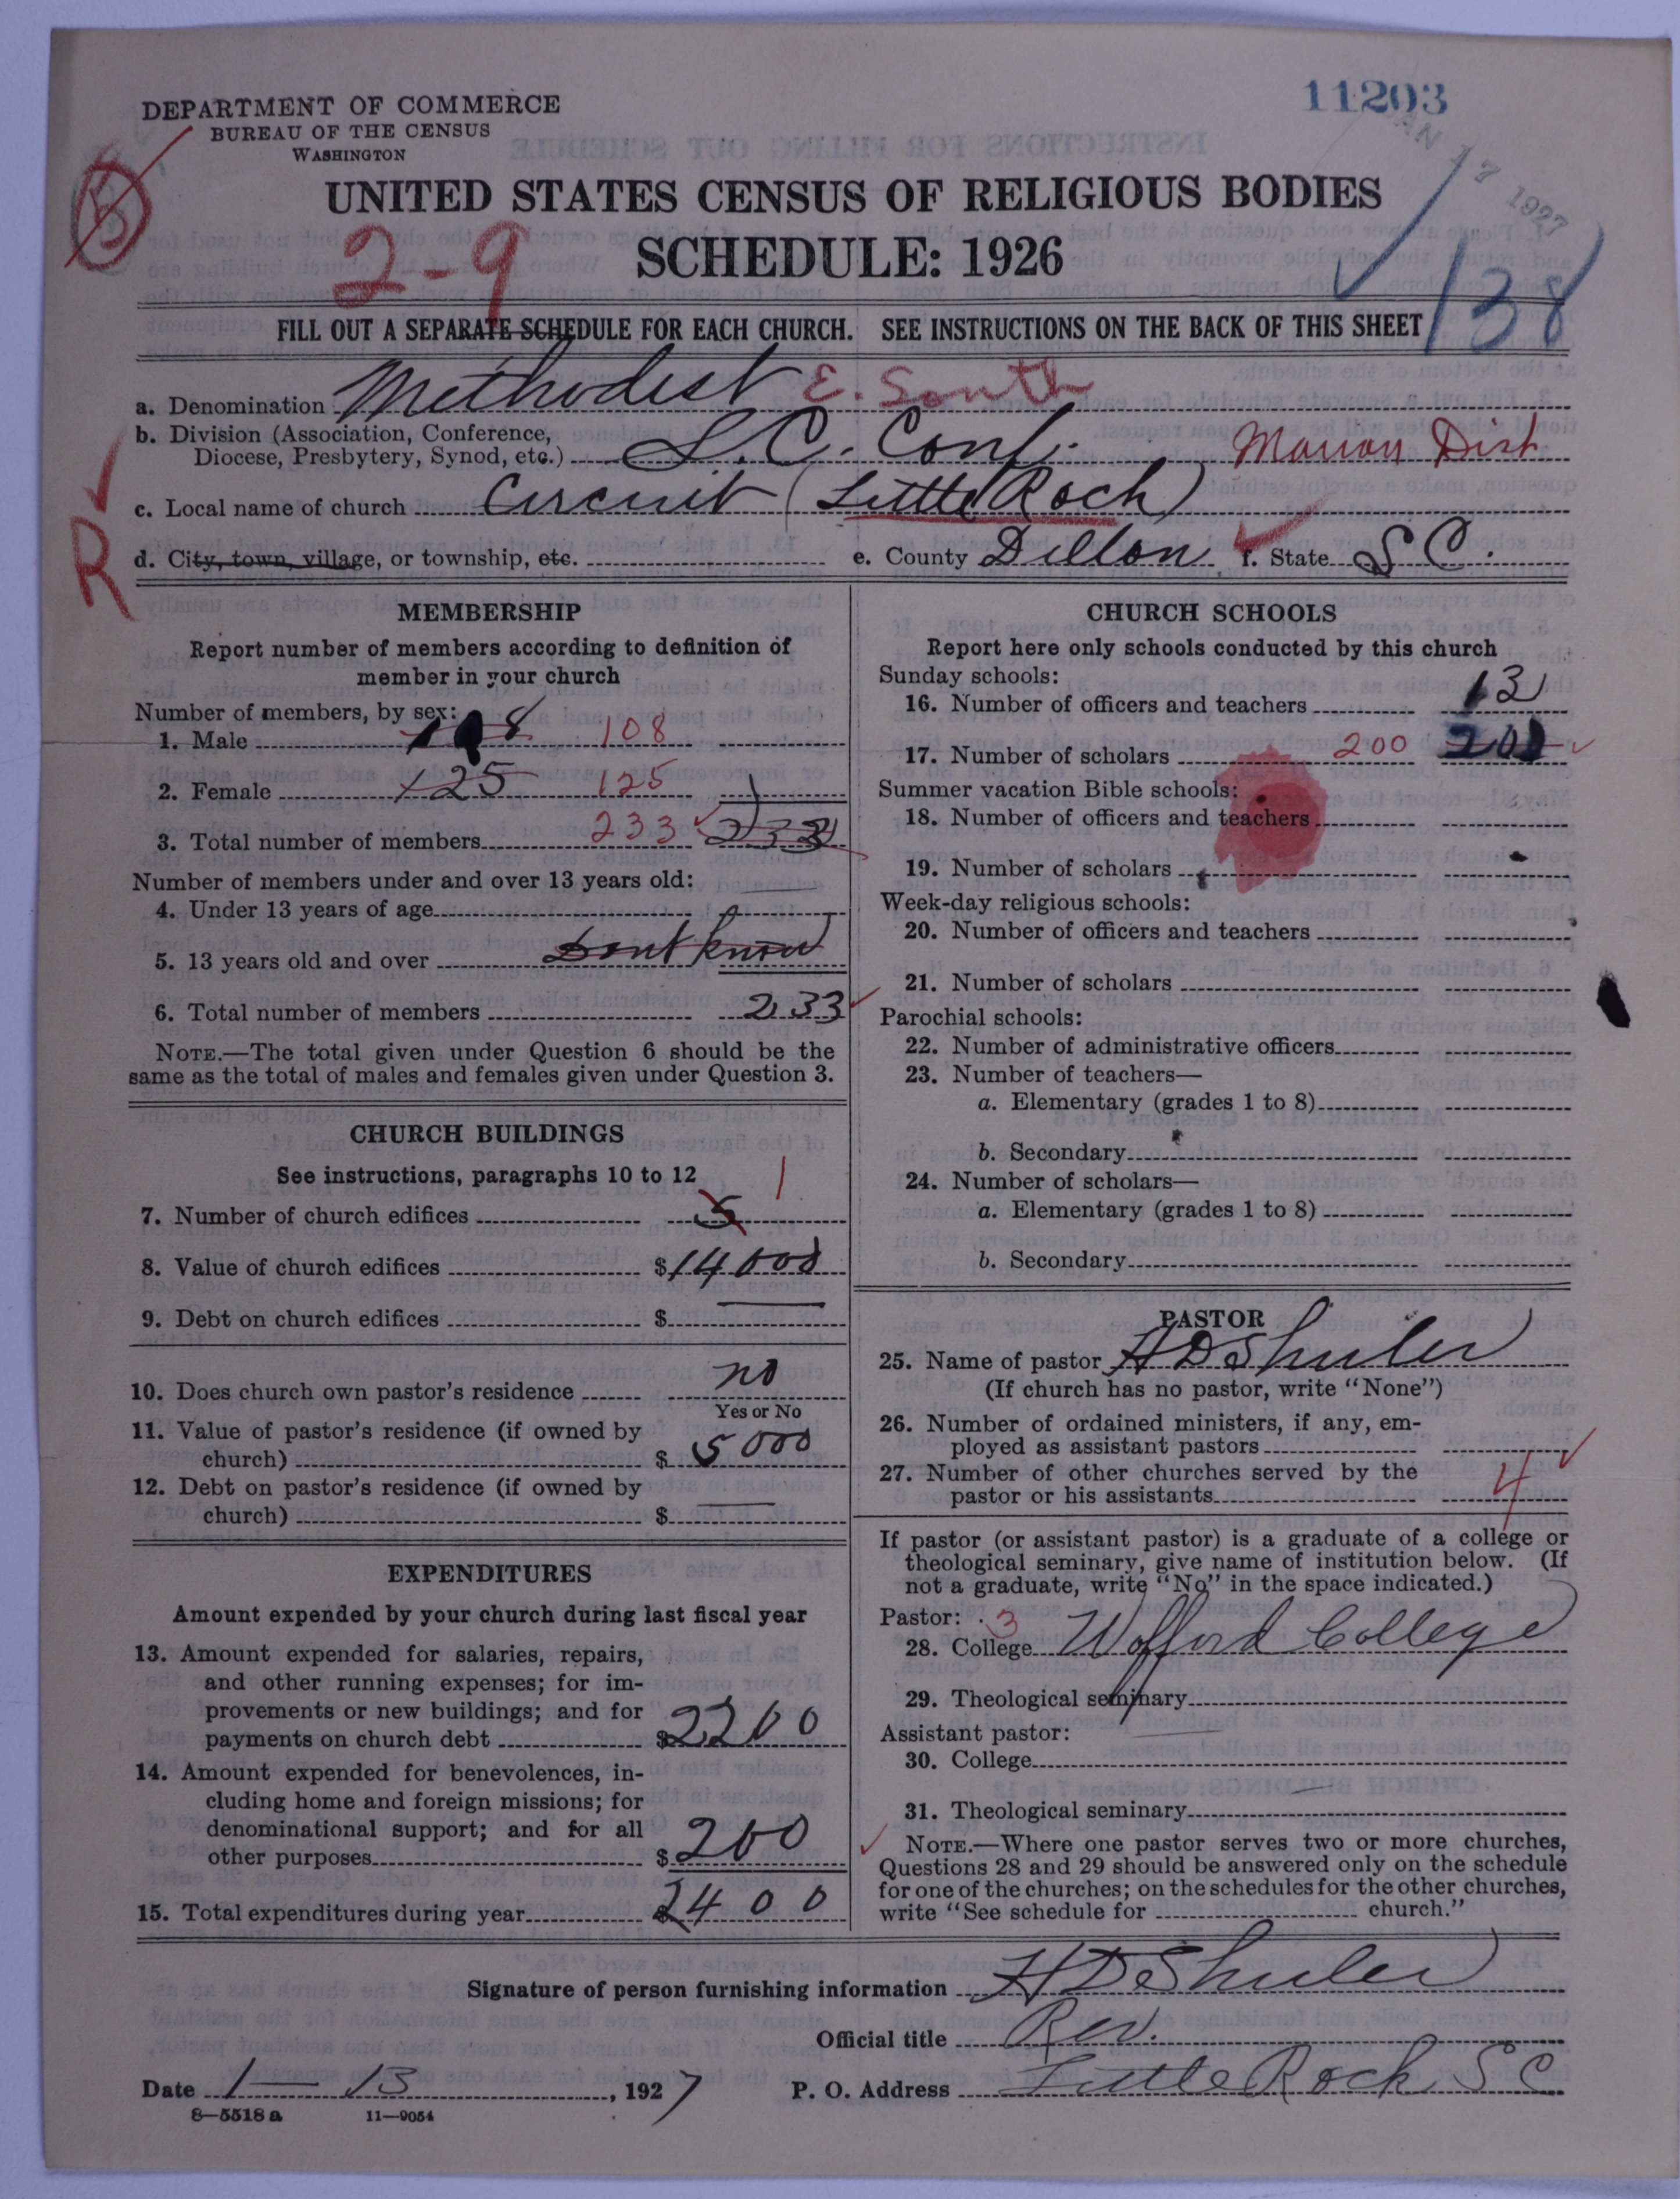 11203
DEPARTMENT OF COMMERCE
BUREAU OF THE CENSUS
WASHINGTON
JAN 17 1927
UNITED STATES CENSUS OF RELIGIOUS BODIES
2-9
SCHEDULE: 1926
138
FILL OUT A SEPARATE SCHEDULE FOR EACH CHURCH. SEE INSTRUCTIONS ON THE BACK OF THIS SHEET
a. Denomination Methodist E. South
b. Division (Association, Conference,
Diocese, Presbytery, Synod, etc.) S.C. Conf. Marion Dist
c. Local name of church Circuit (Little Rock)
R
d. City, town, village, or township, etc.
e. County Dillon f. State S C.
MEMBERSHIP
Report number of members according to definition of
member in your church
Number of members, by sex:
1. Male 108 108
2. Female 125 125
3. Total number of members 233 233
Number of members under and over 13 years old:
4. Under 13 years of age
5. 13 years old and over Dont know
6. Total number of members 233
NOTE.—The total given under Question 6 should be the
same as the total of males and females given under Question 3.
CHURCH BUILDINGS
See instructions, paragraphs 10 to 12
7. Number of church edifices 5 1
8. Value of church edifices $14000
9. Debt on church edifices $
10. Does church own pastor's residence no
Yes or No
11. Value of pastor's residence (if owned by
church) $ 5000
12. Debt on pastor's residence (if owned by
church) $
EXPENDITURES
Amount expended by your church during last fiscal year
13. Amount expended for salaries, repairs,
and other running expenses; for im-
provements or new buildings; and for
payments on church debt $2200
14. Amount expended for benevolences, in-
cluding home and foreign missions; for
denominational support; and for all
other purposes $ 200
15. Total expenditures during year $2400
CHURCH SCHOOLS
Report here only schools conducted by this church
Sunday schools:
16. Number of officers and teachers 13
17. Number of scholars 200 200
Summer vacation Bible schools:
18. Number of officers and teachers
19. Number of scholars
Week-day religious schools:
20. Number of officers and teachers
21. Number of scholars
Parochial schools:
22. Number of administrative officers
23. Number of teachers—
a. Elementary (grades 1 to 8)
b. Secondary
24. Number of scholars—
a. Elementary (grades 1 to 8)
b. Secondary
PASTOR
25. Name of pastor H D Shuler
(If church has no pastor, write "None")
26. Number of ordained ministers, if any, em-
ployed as assistant pastors
27. Number of other churches served by the
pastor or his assistants 4
If pastor (or assistant pastor) is a graduate of a college or
theological seminary, give name of institution below. (If
not a graduate, write "No" in the space indicated.)
Pastor: 3
28. College Wofford College
29. Theological seminary
Assistant pastor:
30. College
31. Theological seminary
NOTE.—Where one pastor serves two or more churches,
Questions 28 and 29 should be answered only on the schedule
for one of the churches; on the schedules for the other churches,
write "See schedule for church."
Signature of person furnishing information H D Shuler
Official title Rev.
Date 1 — 13, 1927
P. O. Address Little Rock, S C
8—5518 a 11—9054